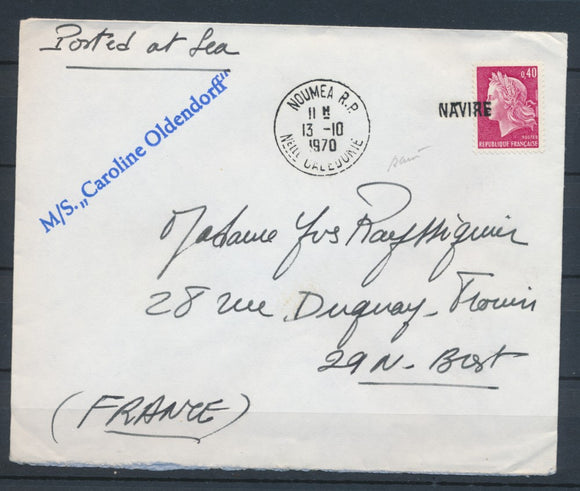 Posted at Sea
M/S. „Caroline Oldendorff"
NOUMEA R.P.
11 H
13 -10
1970
Nelle CALEDONIE
NAVIRE
0,40
POSTES
REPUBLIQUE FRANÇAISE
Madame Yves
28 rue Duguay-Trouin
29N. Brest
(FRANCE)